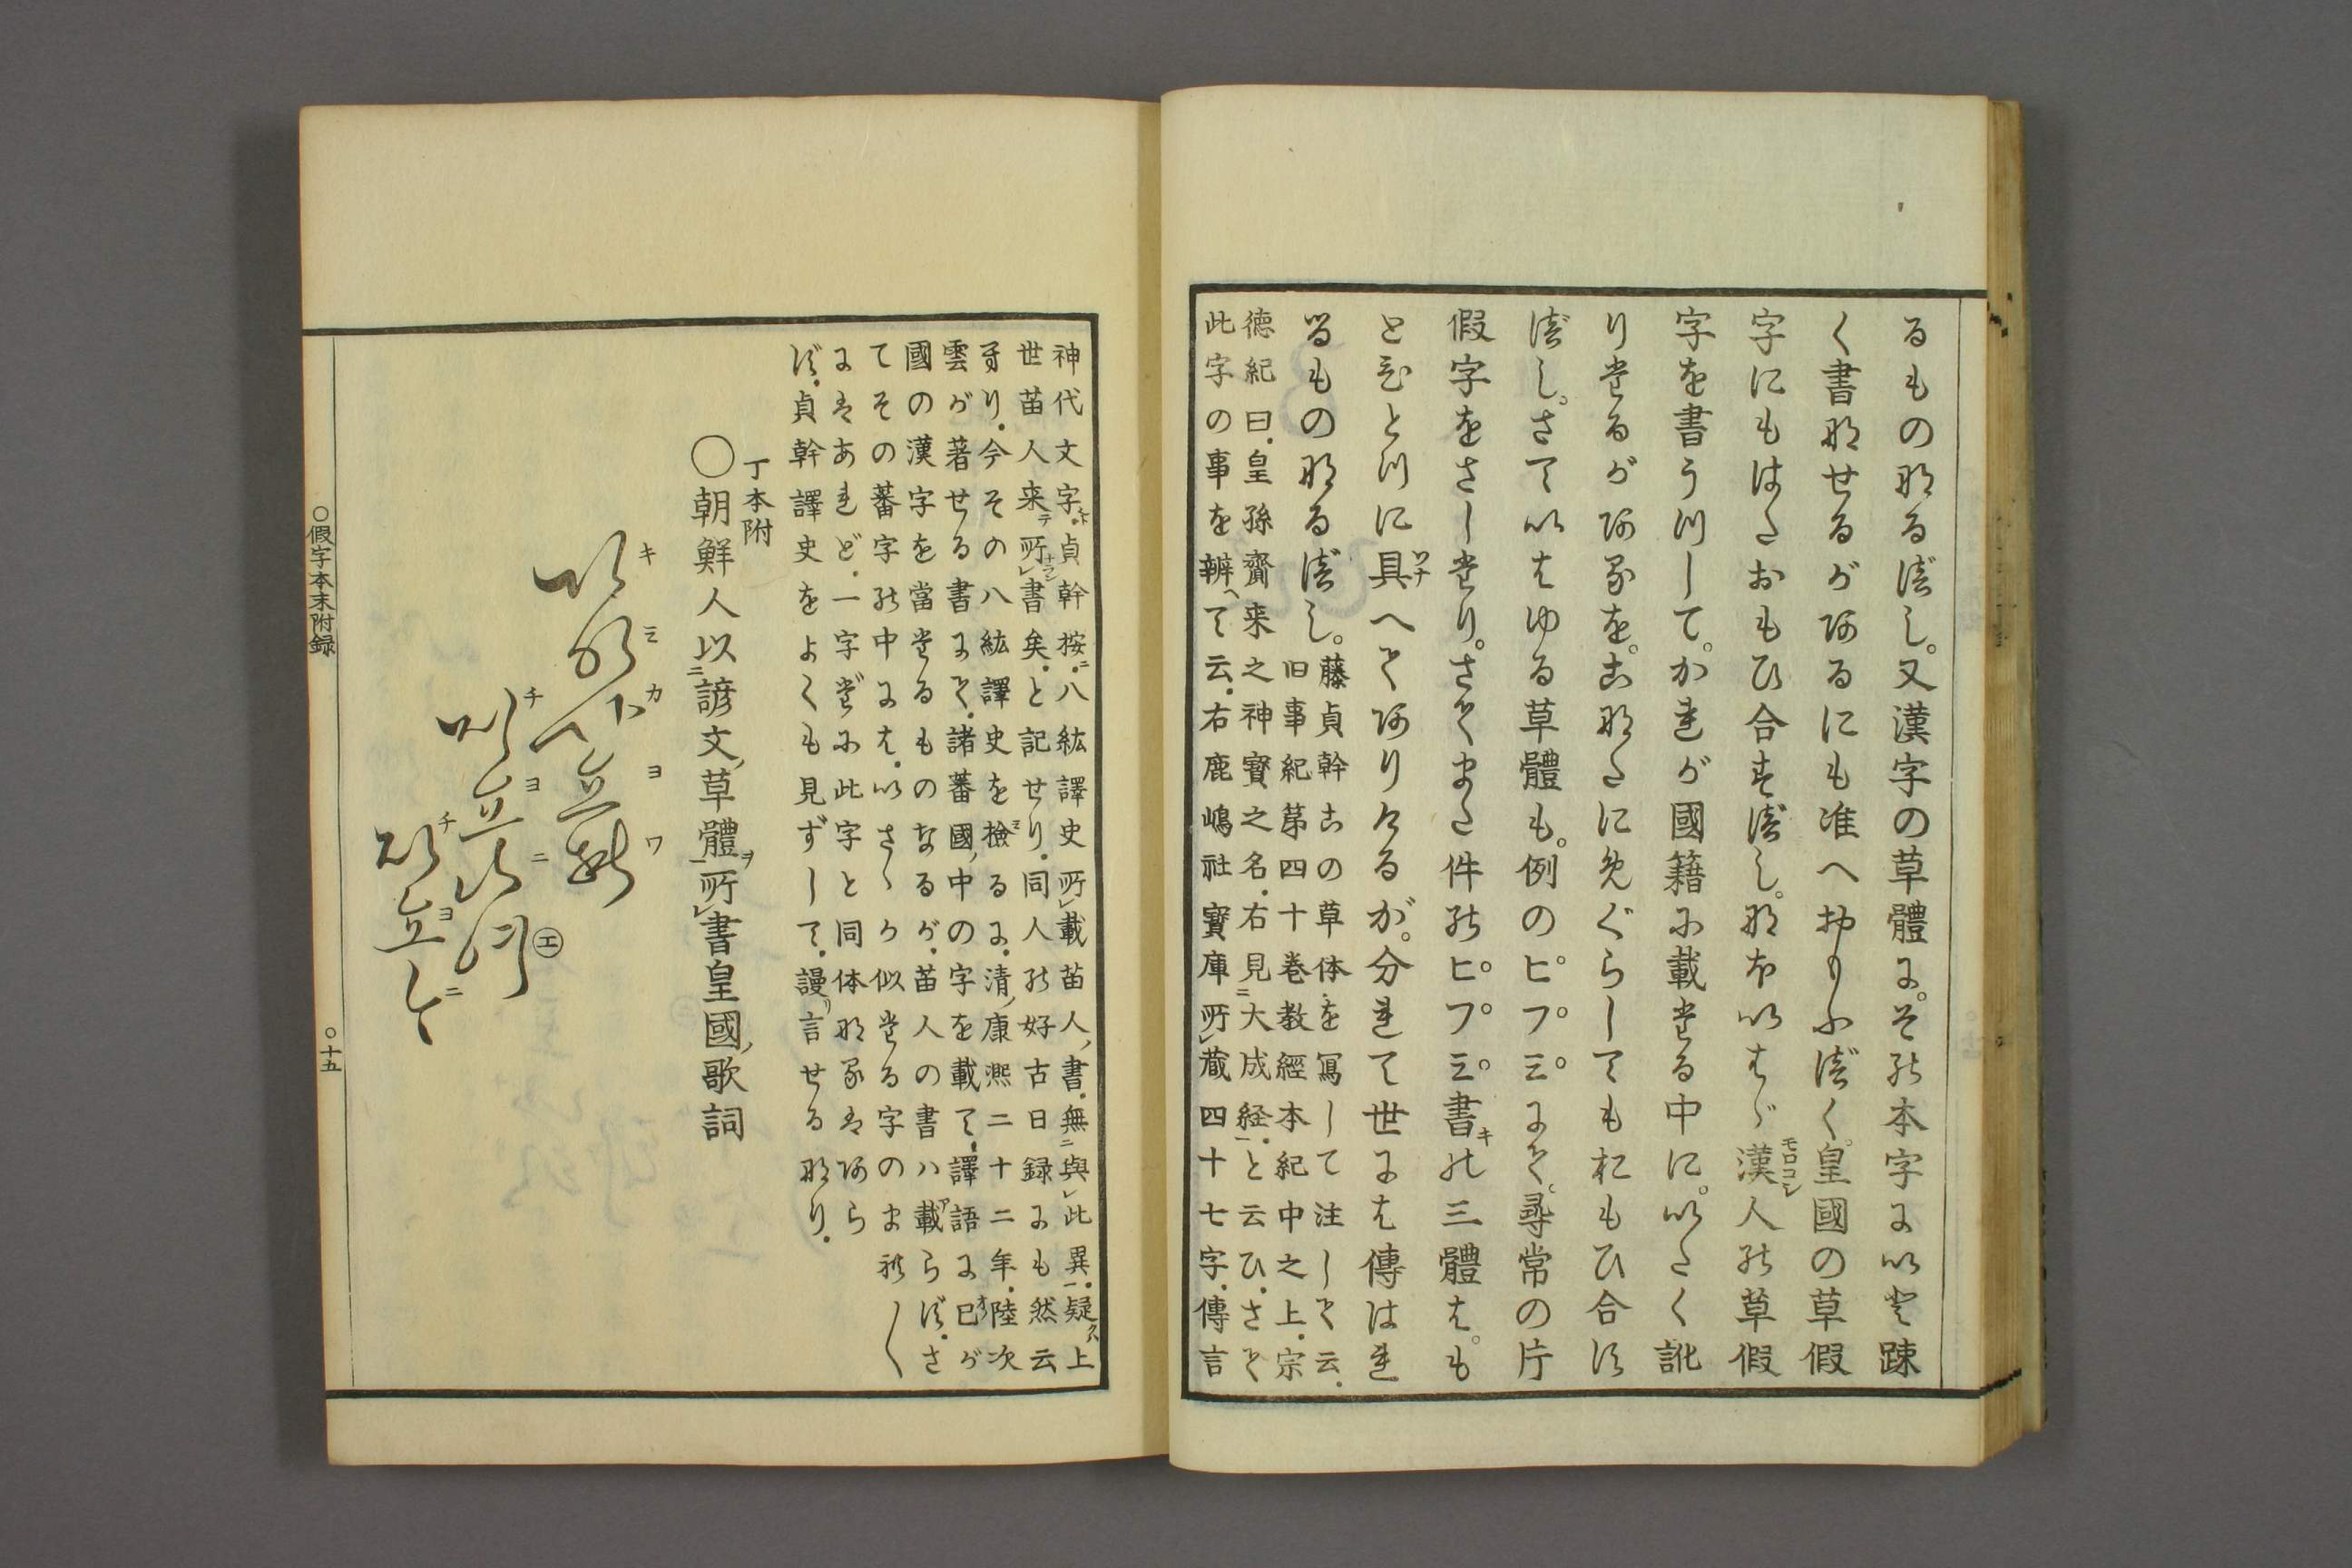 るもの那る遍し。又漢字の草體に。その本字にいと疎
く書那せるが阿るにも准へおもふ遍く。皇國の草假
字にもはたおもひ合す遍し。那ほいはゞ漢人の草假
モロコシ
字を書うつして。かれが國籍に載たる中に。いたく訛
りたるが阿るを。こ那たにめぐらしてもおもひ合は
遍し。さていはゆる草體も。例のヒ。フ。ミ。にて。尋常の片
假字をさしたり。さてまた件のヒ。フ。ミ。書の三體は。も
キ
とひとつに具へて阿りけるが。分れて世には傳はれ
ツナ
るもの那る遍し。
藤貞幹この草体を寫して注して云.
旧事紀第四十卷教經本紀中之上.宗
德紀曰.皇孫齎来之神寳之名.右見大成経.と云ひ.さて
此字の事を辨へて云.右鹿嶋社寳庫所藏四十七字.傳言
神代文字.貞幹按.八紘譯史所載苗人書.無與此異.疑上
世苗人来テ所書矣.と記せり.同人の好古日録にも然云
れり.今その八紘譯史を檢るに.清康熙二十二年.陸次
雲が著せる書にて.諸蕃國中の字を載て.譯語に已が
國の漢字を當たるものなるが.苗人の書ハ載らず.さ
てその蕃字の中には.いさゝか似たる字のまれ〱
にはあれど.一字だに此字と同体那るは阿ら
ず.貞幹譯史をよくも見ずして.謾言せる那り.
丁本附
〇朝鮮人以諺文草體所書皇國歌詞
キミカヨワ
チヨニ㋓
チヨニ
〇假字本末附録
〇十五